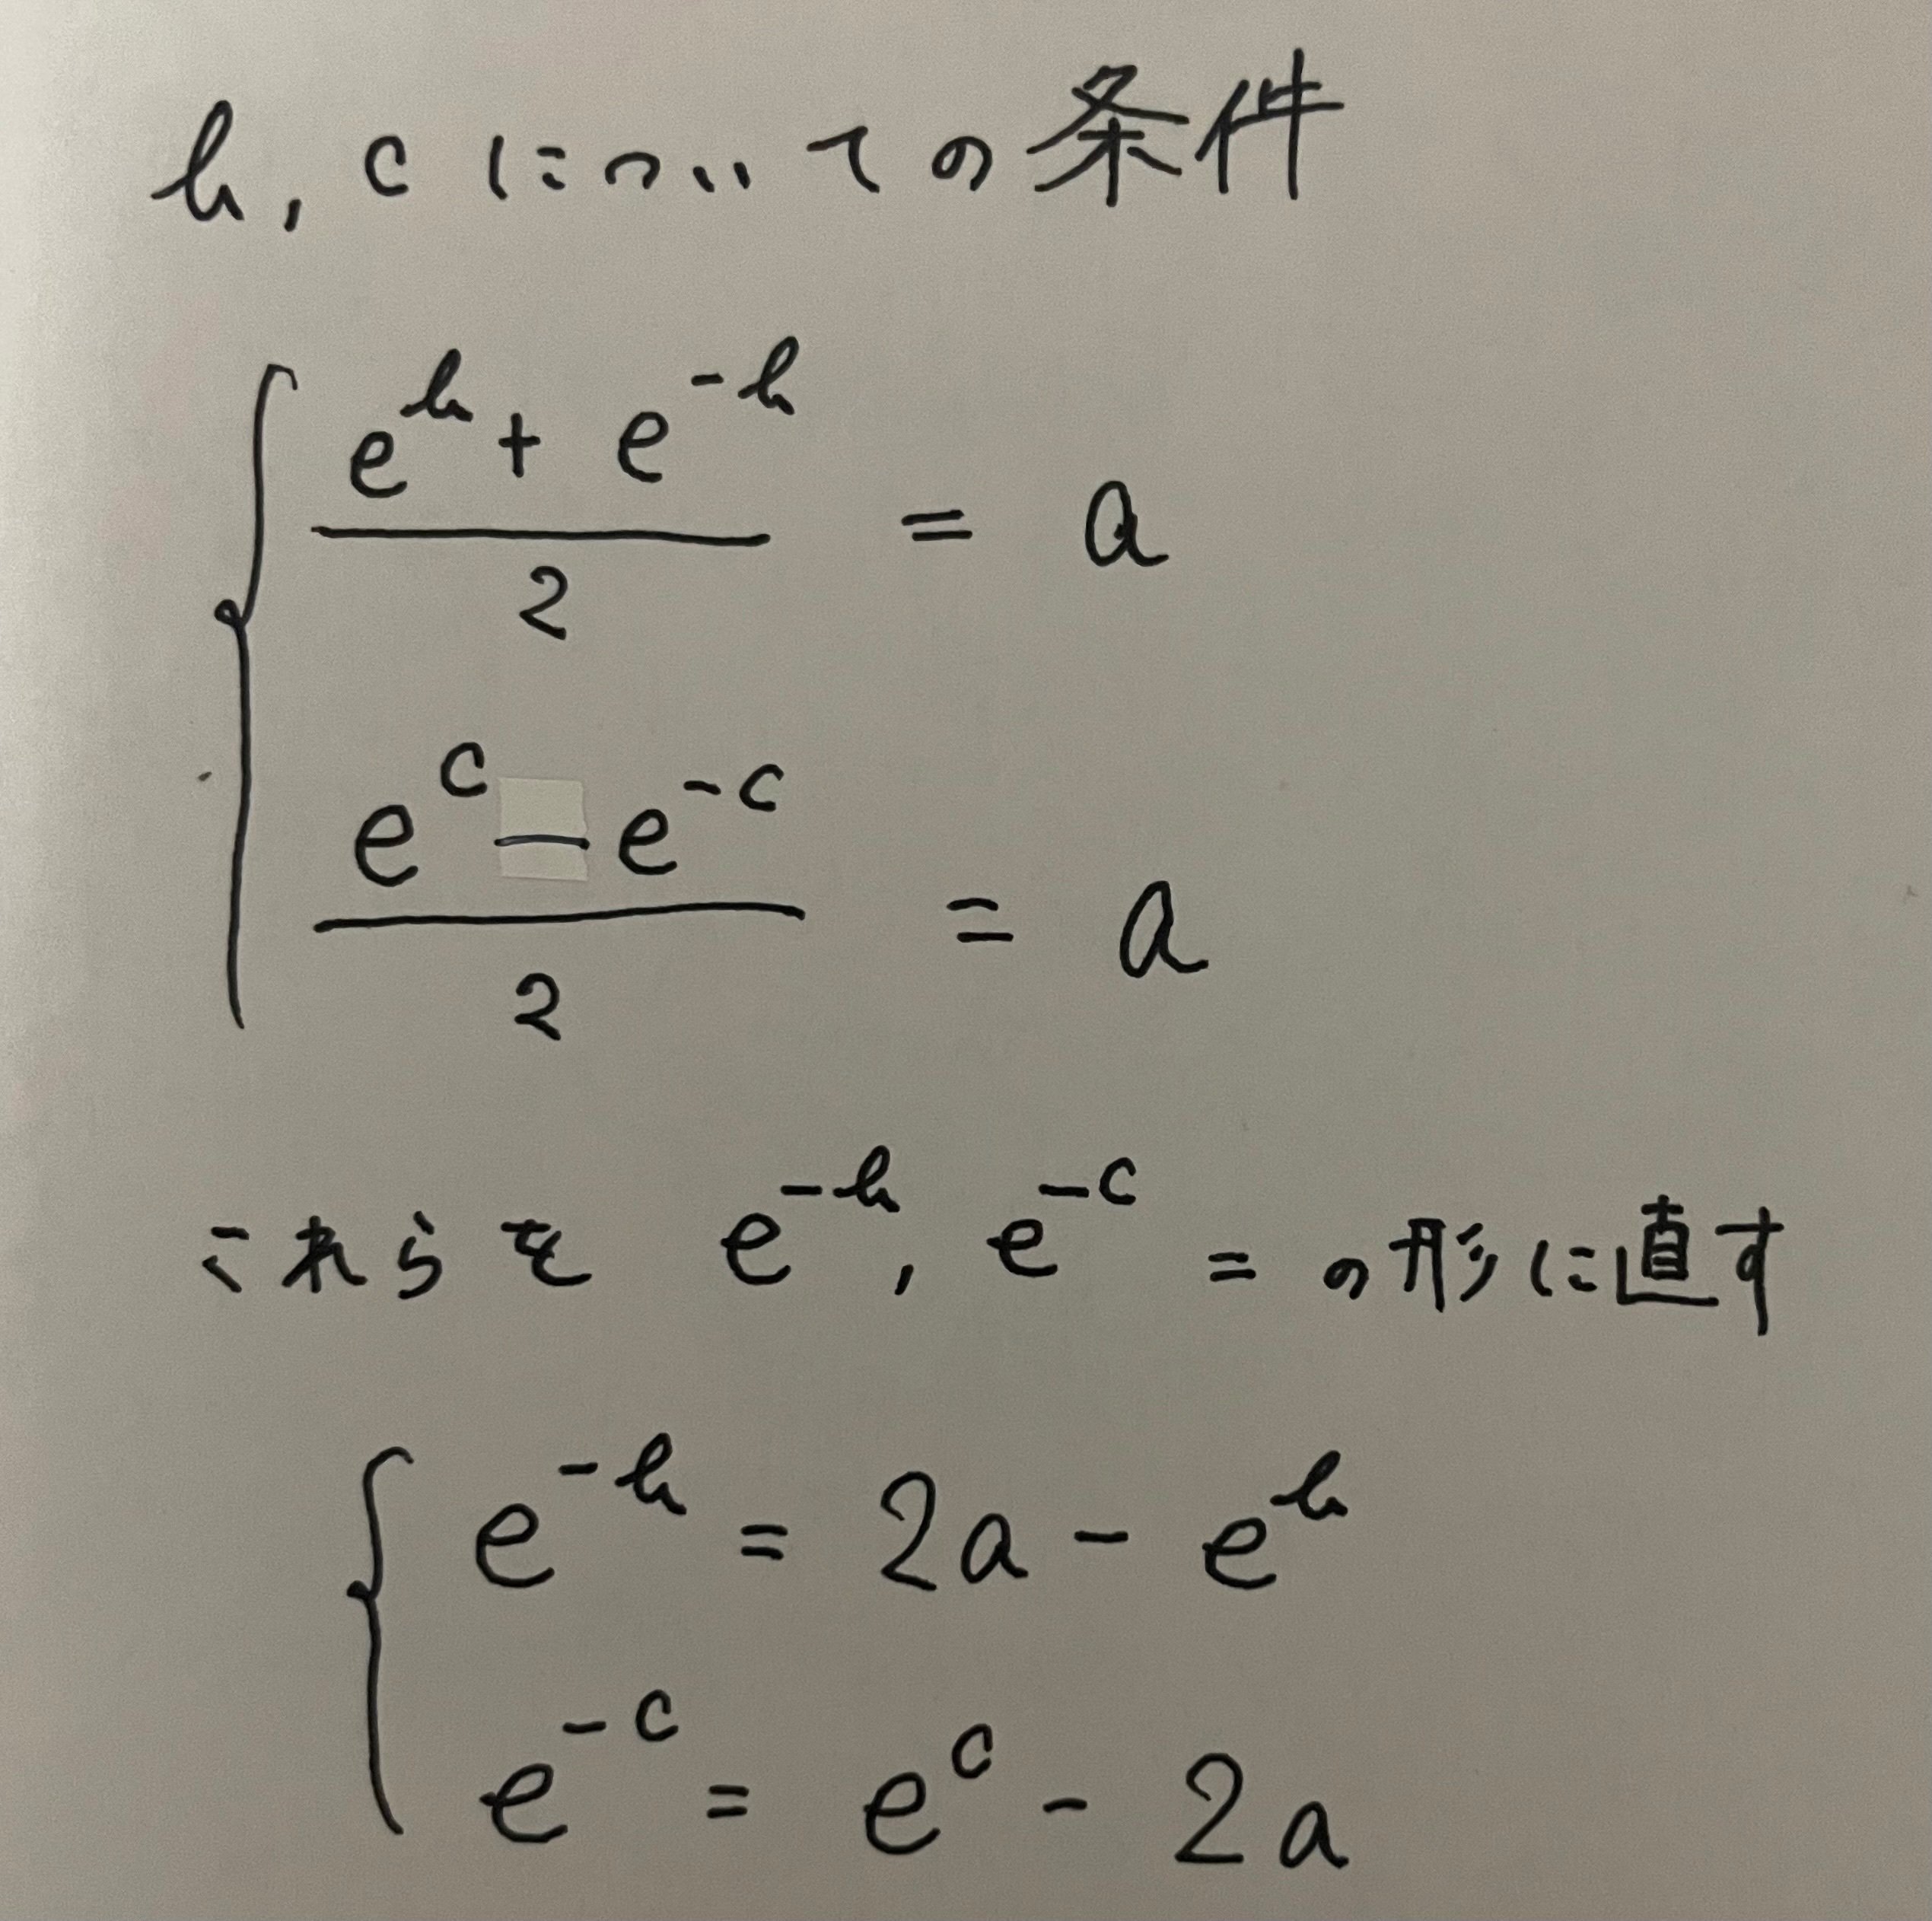 b, c についての条件
{ (e^b + e^-b) / 2 = a
{ (e^c - e^-c) / 2 = a
これらを e^-b, e^-c = の形に直す
{ e^-b = 2a - e^b
{ e^-c = e^c - 2a